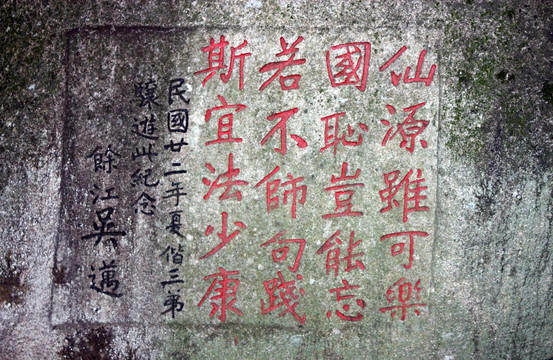 仙源雖可樂
國恥豈能忘
若不師句踐
斯宜法少康
民國廿二年夏偕三弟
驥遊此紀念
餘江吳邁